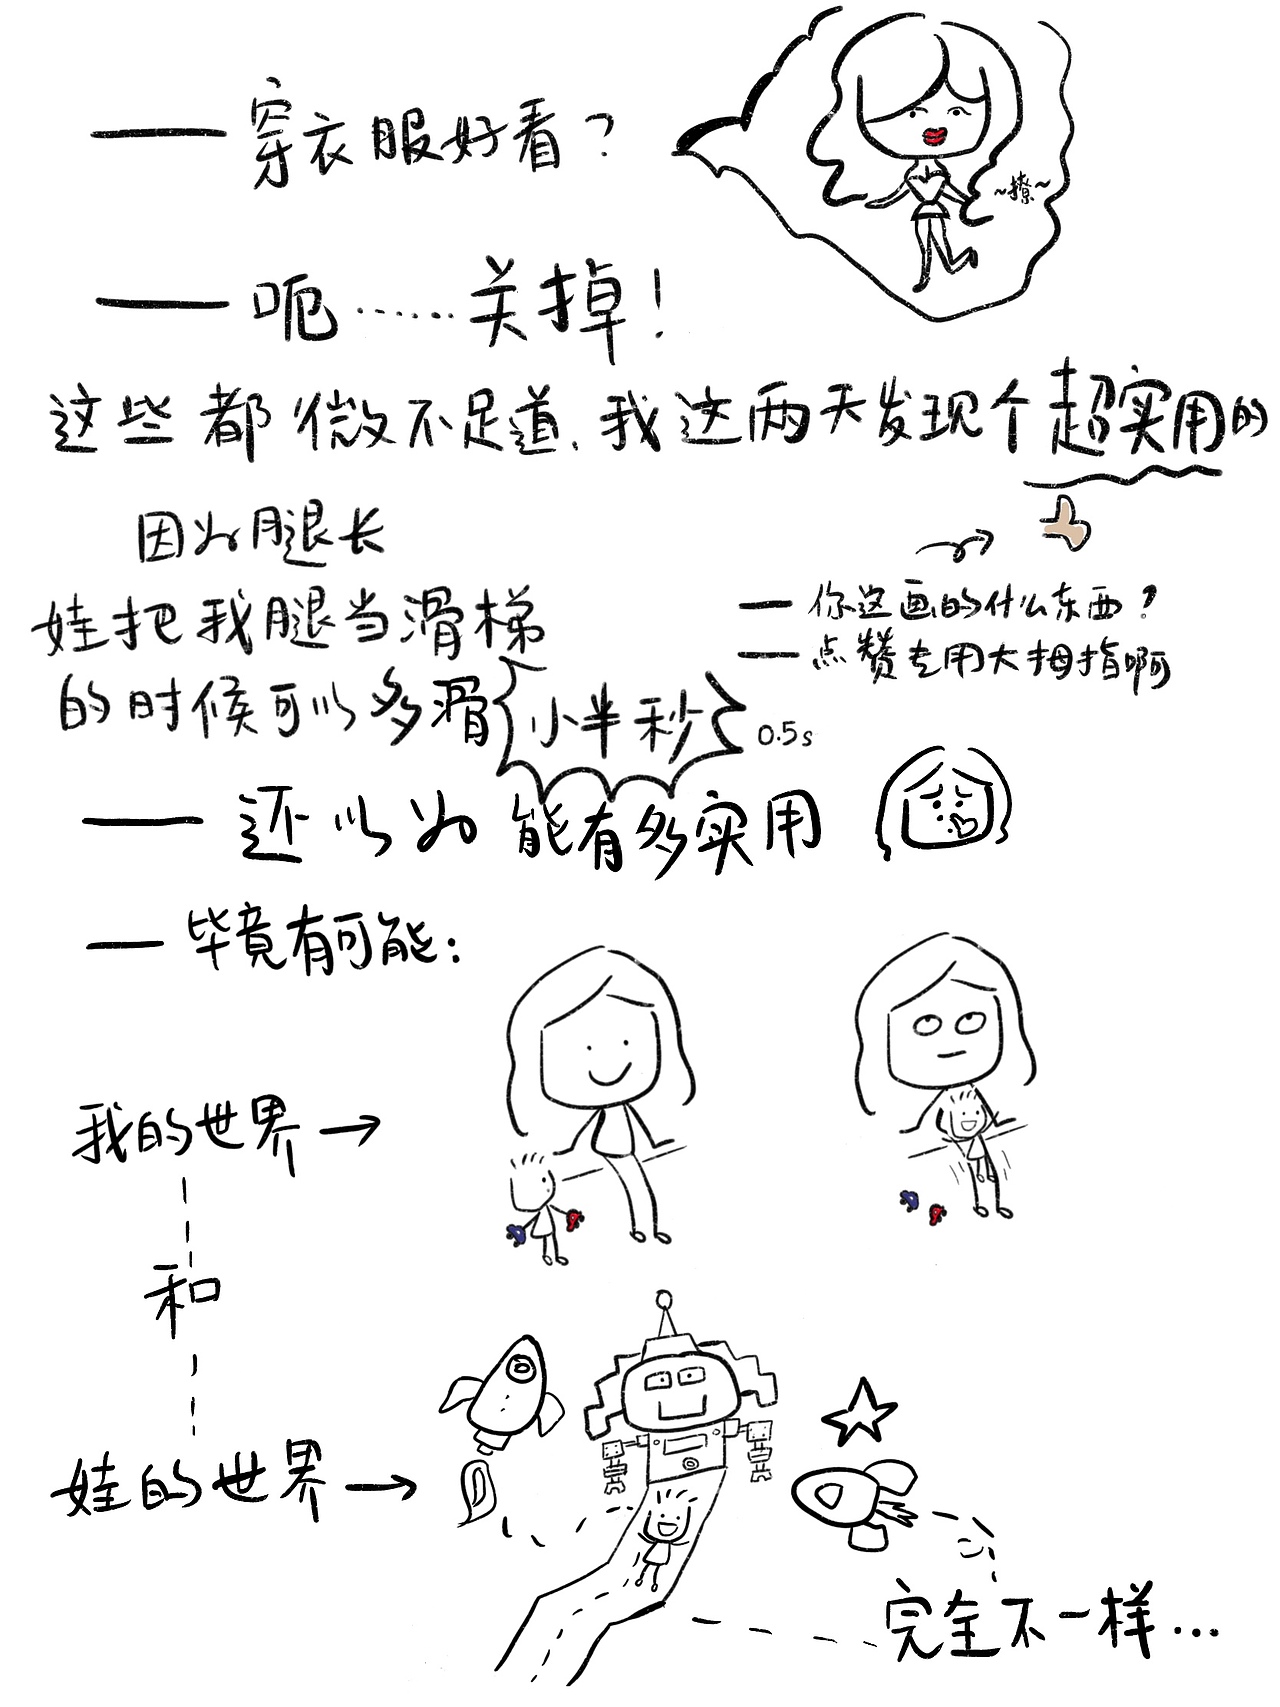 ——穿衣服好看？
~撩~
——呃……关掉！
这些都微不足道，我这两天发现个超实用的
因为腿长
娃把我腿当滑梯
的时候可以多滑小半秒 0.5s
——你这画的什么东西？
——点赞专用大拇指啊
——还以为能有多实用
——毕竟有可能：
我的世界→
和
娃的世界→
完全不一样…